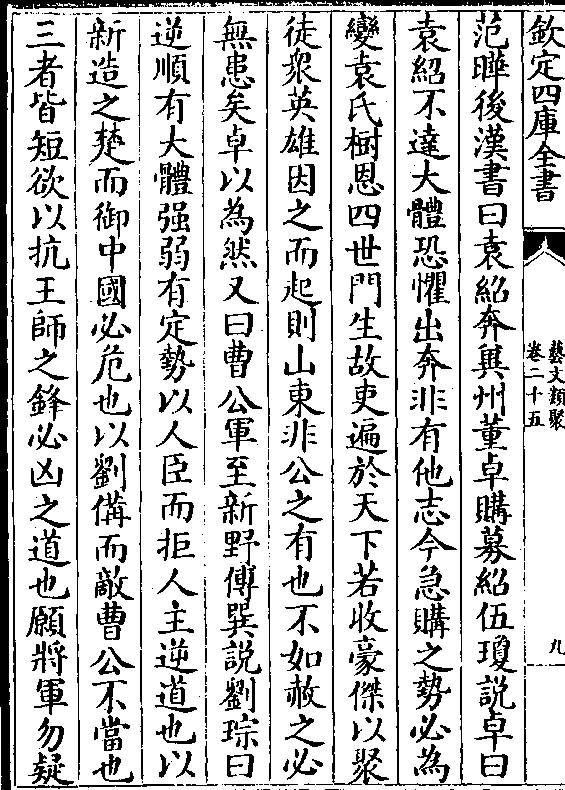 欽定四庫全書
藝文類聚
卷二十五
九
范曄後漢書曰袁紹奔冀州董卓購募紹伍瓊說卓曰
袁紹不達大體恐懼出奔非有他志今急購之勢必為
變袁氏樹恩四世門生故吏遍於天下若收豪傑以聚
徒衆英雄因之而起則山東非公之有也不如赦之必
無患矣卓以為然又曰曹公軍至新野傅巽說劉琮曰
逆順有大體强弱有定勢以人臣而拒人主逆道也以
新造之楚而御中國必危也以劉備而敵曹公不當也
三者皆短欲以抗王師之鋒必凶之道也願將軍勿疑